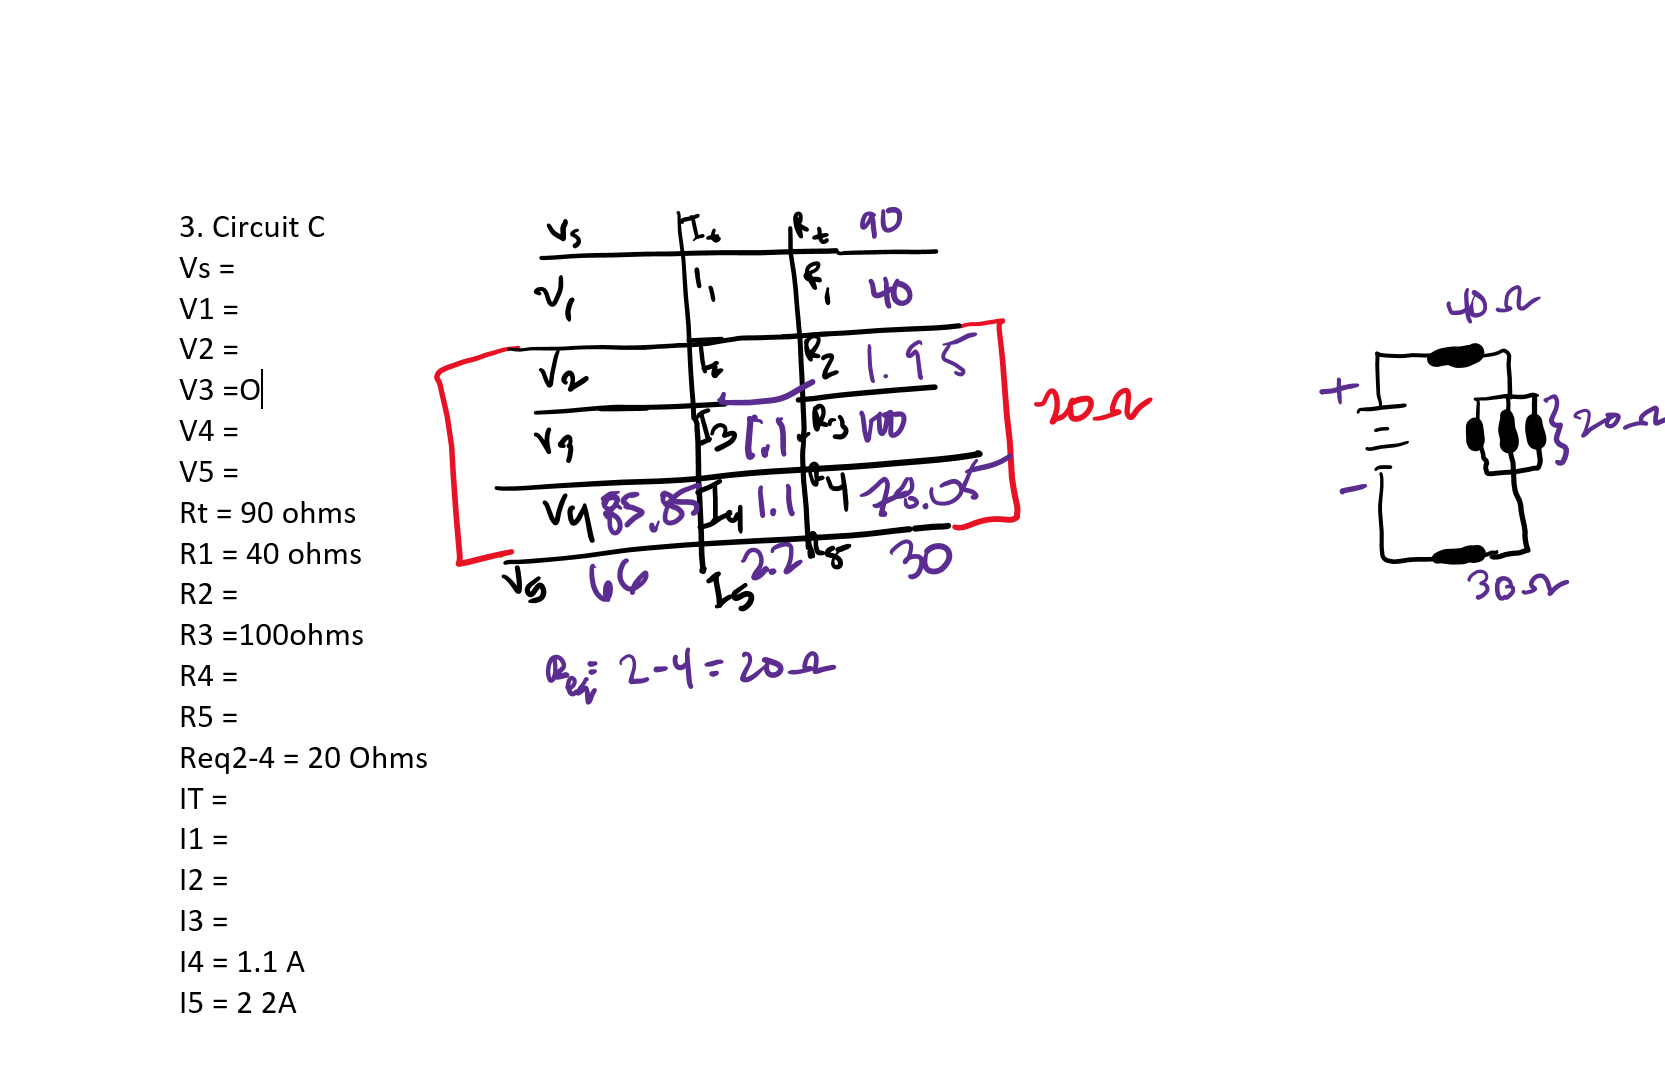 3. Circuit C
Vs =
V1 =
V2 =
V3 =O
V4 =
V5 =
Rt = 90 ohms
R1 = 40 ohms
R2 =
R3 =100ohms
R4 =
R5 =
Req2-4 = 20 Ohms
IT =
I1 =
I2 =
I3 =
I4 = 1.1 A
I5 = 2 2A
Vs It Rt 90
V1 I1 R1 40
V2 R2 1.95
I3 1.1 R3 100
V4 85.85 I4 1.1 4
V5 66 I5 2.2 30
20Ω
Req= 2-4 = 20Ω
40Ω
+
20Ω
-
30Ω